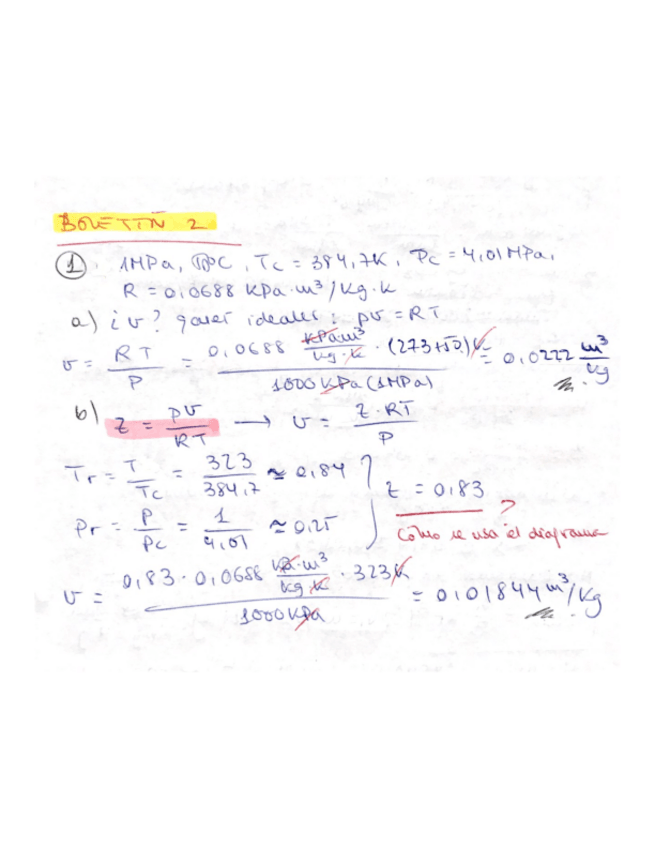 BOLETÍN 2
① 1MPa, 50ºC, Tc = 384,7K, Pc = 4,01MPa,
R = 0,0688 KPa·m³/Kg·K
a) ¿v? gases ideales: pv = RT
v = RT/P = 0,0688 KPa·m³/Kg·K · (273+50)K / 1000KPa (1MPa) = 0,0222 m³/Kg
b) z = pv/RT → v = z·RT/P
Tr = T/Tc = 323/384,7 ≈ 0,84
z = 0,83
Pr = P/Pc = 1/4,01 ≈ 0,25
Cómo se usa el diagrama?
v = 0,83 · 0,0688 KPa·m³/Kg·K · 323K / 1000KPa = 0,01844 m³/Kg